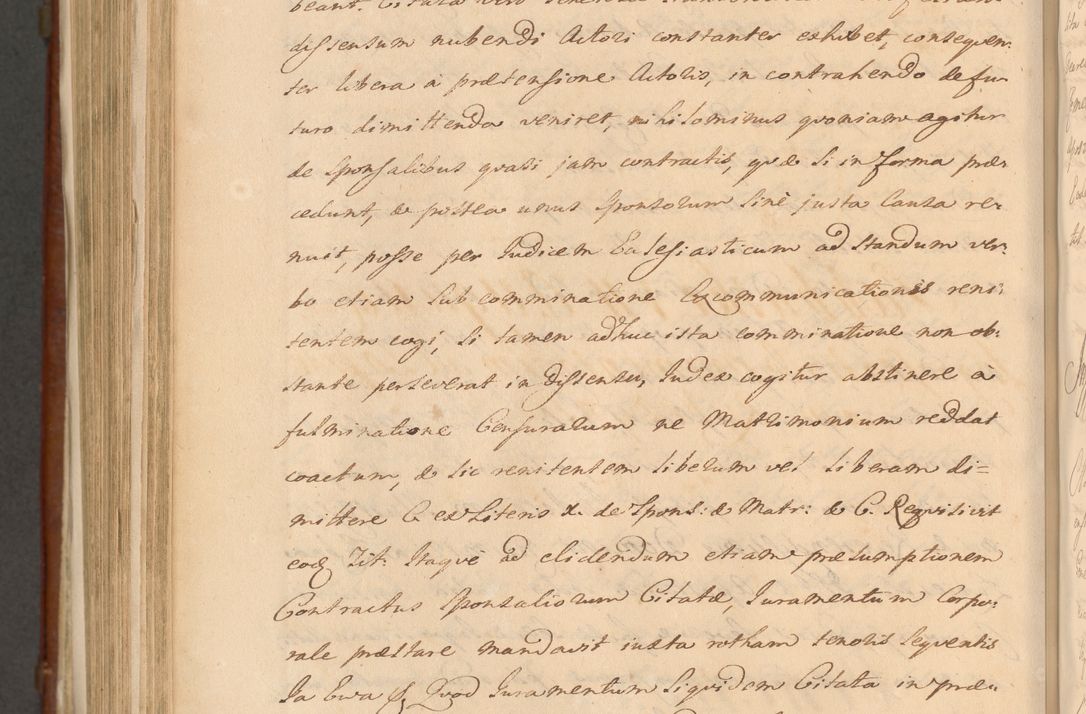 dissensum nubendi Actori constanter exhibet, consequen-
ter libera à prætensione Actoris, in contrahendo de fu-
turo dimittenda veniret, nihilominus quoniam agitur
de Sponsalibus quasi jam contractis, quæ si in forma præ-
cedunt, & postea unus Sponsorum sinè justa Causa re-
nuit, posse per Judicem Eclesiasticum ad standum ver-
bo etiam sub comminatione Excommunicationis reni-
tentem cogi, si tamen adhuc ista comminatione non ob-
stante perseverat in dissensu, Judex cogitur abstinere à
fulminatione Censurarum ne Matrimonium reddat
coactum, & sic renitentem liberum vel liberam di=
mittere C. ex Literis x. de Spons: & Matr: & C. Requisivit
eoq Tit: Itaque ad elidendum etiam præsumptionem
Contractus Sponsaliorum Citatæ, Juramentum Corpo-
rale præstare mandavit iuxta rotham tenoris sequentis
Ja Ewa & Quod Juramentum siquidem Citata in præ-